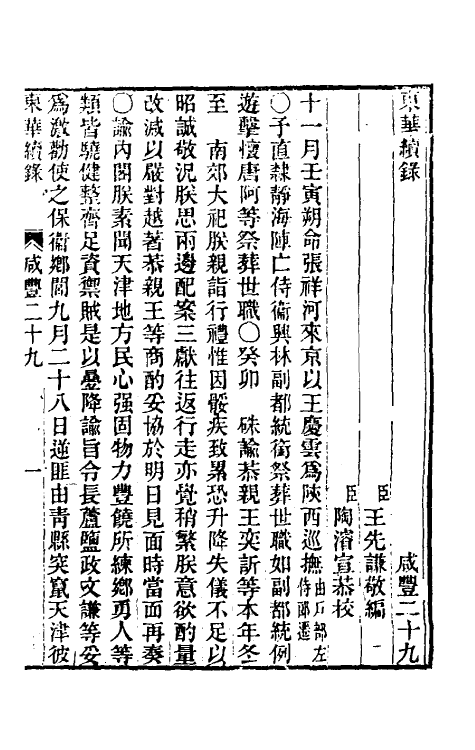 東華續錄　咸豐二十九
臣王先謙敬編
臣陶濬宣恭校
十一月壬寅朔命張祥河來京以王慶雲爲陝西巡撫由戶部左侍郎遷
〇予直隸靜海陣亡侍衞興林副都統銜祭葬世職如副都統例
遊擊懷唐阿等祭葬世職〇癸卯　硃諭恭親王奕訢等本年冬
至　南郊大祀朕親詣行禮惟因骽疾致累恐升降失儀不足以
昭誠敬況朕思兩邊配案三獻往返行走亦覺稍繁朕意欲酌量
改減以嚴對越著恭親王等商酌妥協於明日見面時當面再奏
〇諭內閣朕素聞天津地方民心强固物力豐饒所練鄉勇人等
類皆驍健整齊足資禦賊是以疊降諭旨令長蘆鹽政文謙等妥
爲激勸使之保衞鄉閭九月二十八日逆匪由靑縣突竄天津彼
東華續錄　咸豐二十九　一